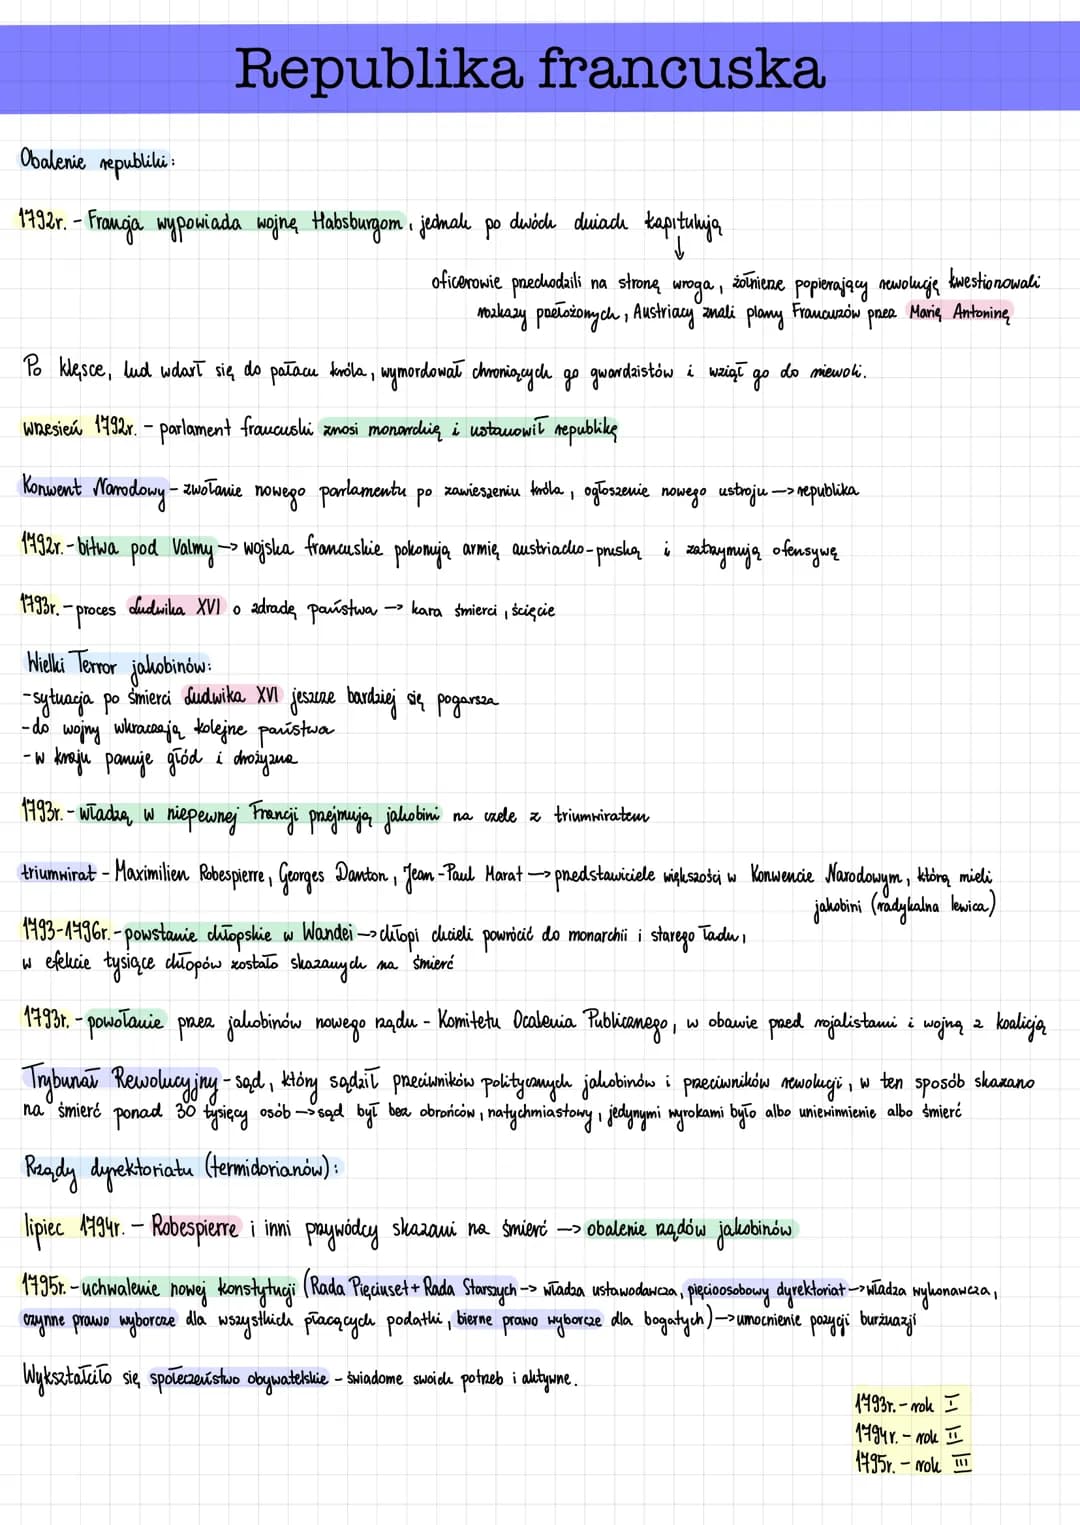 Republika francuska
Obalenie republiki:
1792r. - Francja wypowiada wojnę Habsburgom, jednak po dwóch dniach kapitulują
↓
oficerowie przechodzili na stronę wroga, żołnierze popierający rewolucję kwestionowali
rozkazy przełożonych, Austriacy znali plany Francuzów przez Marię Antoninę
Po klęsce, lud wdarł się do pałacu króla, wymordował chroniących go gwardzistów i wziął go do niewoli.
wrzesień 1792r. - parlament francuski znosi monarchię i ustanowił republikę
Konwent Narodowy - zwołanie nowego parlamentu po zawieszeniu króla, ogłoszenie nowego ustroju -> republika
1792r. - bitwa pod Valmy -> wojska francuskie pokonują armię austriacko-pruską i zatrzymują ofensywę
1793r. - proces Ludwika XVI o zdradę państwa -> kara śmierci, ścięcie
Wielki Terror jakobinów:
- sytuacja po śmierci Ludwika XVI jeszcze bardziej się pogarsza
- do wojny wkraczają kolejne państwa
- w kraju panuje głód i drożyzna
1793r. - władzę w niepewnej Francji przejmują jakobini na czele z triumwiratem
triumwirat - Maximilien Robespierre, Georges Danton, Jean-Paul Marat -> przedstawiciele większości w Konwencie Narodowym, którą mieli
jakobini (radykalna lewica)
1793-1796r. - powstanie chłopskie w Wandei -> chłopi chcieli powrócić do monarchii i starego ładu,
w efekcie tysiące chłopów zostało skazanych na śmierć
1793r. - powołanie przez jakobinów nowego rządu - Komitetu Ocalenia Publicznego, w obawie przed rojalistami i wojną z koalicją
Trybunał Rewolucyjny - sąd, który sądził przeciwników politycznych jakobinów i przeciwników rewolucji, w ten sposób skazano
na śmierć ponad 30 tysięcy osób -> sąd był bez obrońców, natychmiastowy, jedynymi wyrokami było albo uniewinnienie albo śmierć
Rządy dyrektoriatu (termidorianów):
lipiec 1794r. - Robespierre i inni przywódcy skazani na śmierć -> obalenie rządów jakobinów
1795r. - uchwalenie nowej konstytucji (Rada Pięciuset + Rada Starszych -> władza ustawodawcza, pięcioosobowy dyrektoriat -> władza wykonawcza,
czynne prawo wyborcze dla wszystkich płacących podatki, bierne prawo wyborcze dla bogatych) -> umocnienie pozycji burżuazji
Wykształciło się społeczeństwo obywatelskie - świadome swoich potrzeb i aktywne.
1793r. - rok I
1794r. - rok II
1795r. - rok III